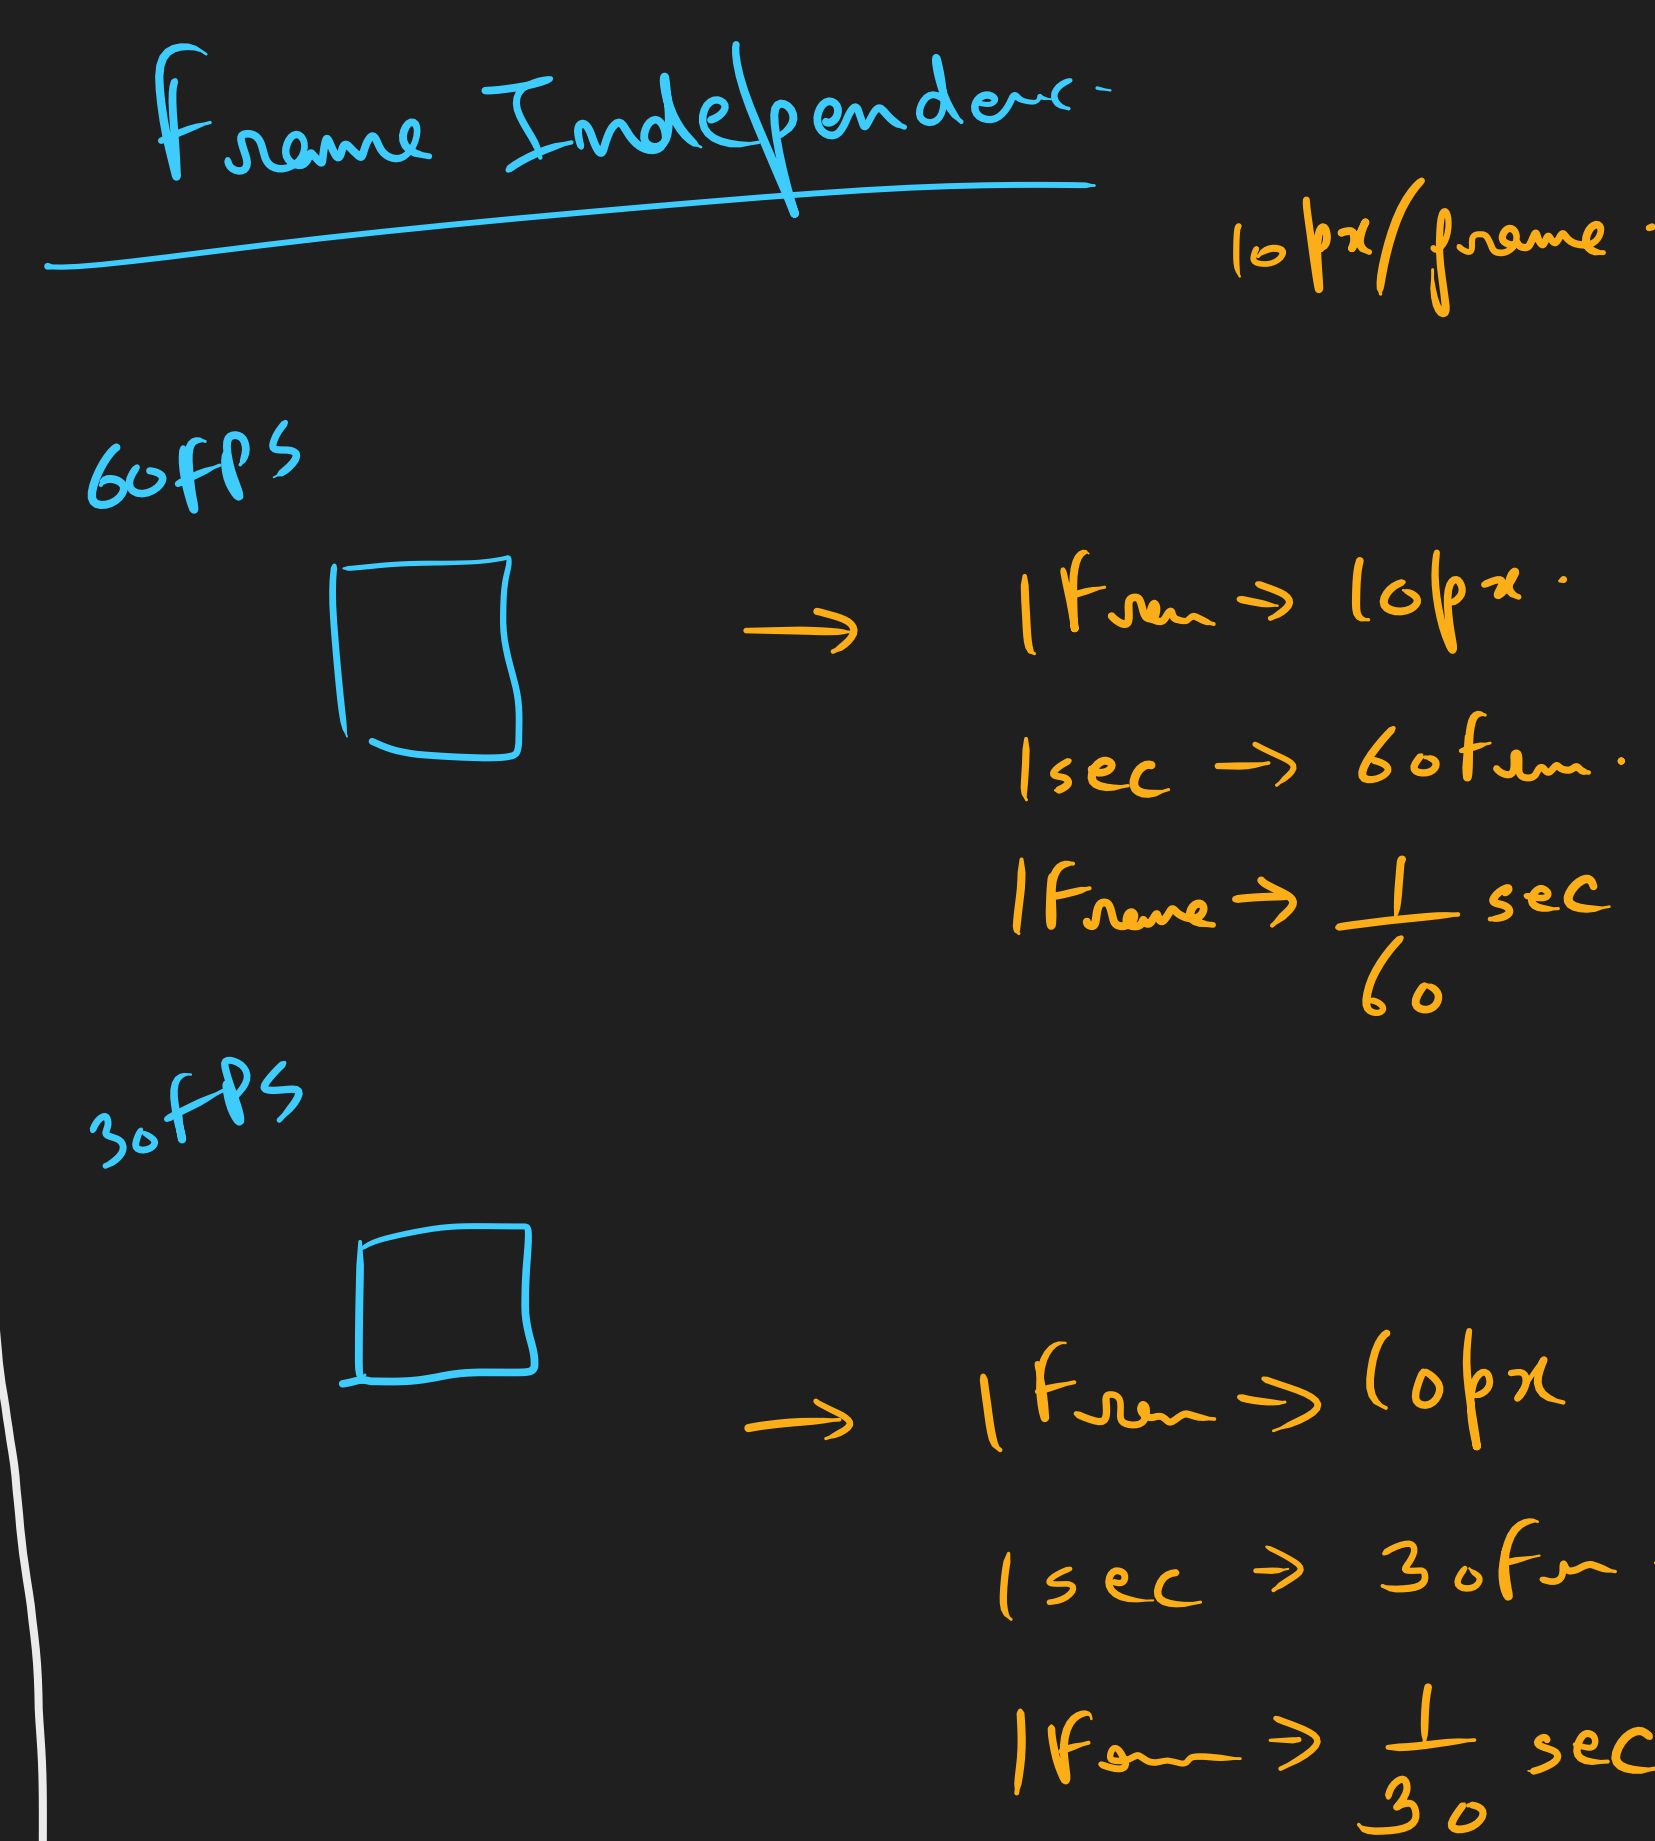 Frame Independenc-
10px/frame.
60fps
1 Fram → 10px.
1 sec → 60 Fram.
1 Frame → 1/60 sec
30fps
1 Fram → 10px
1 sec → 30 Fra
1 Fram → 1/30 sec